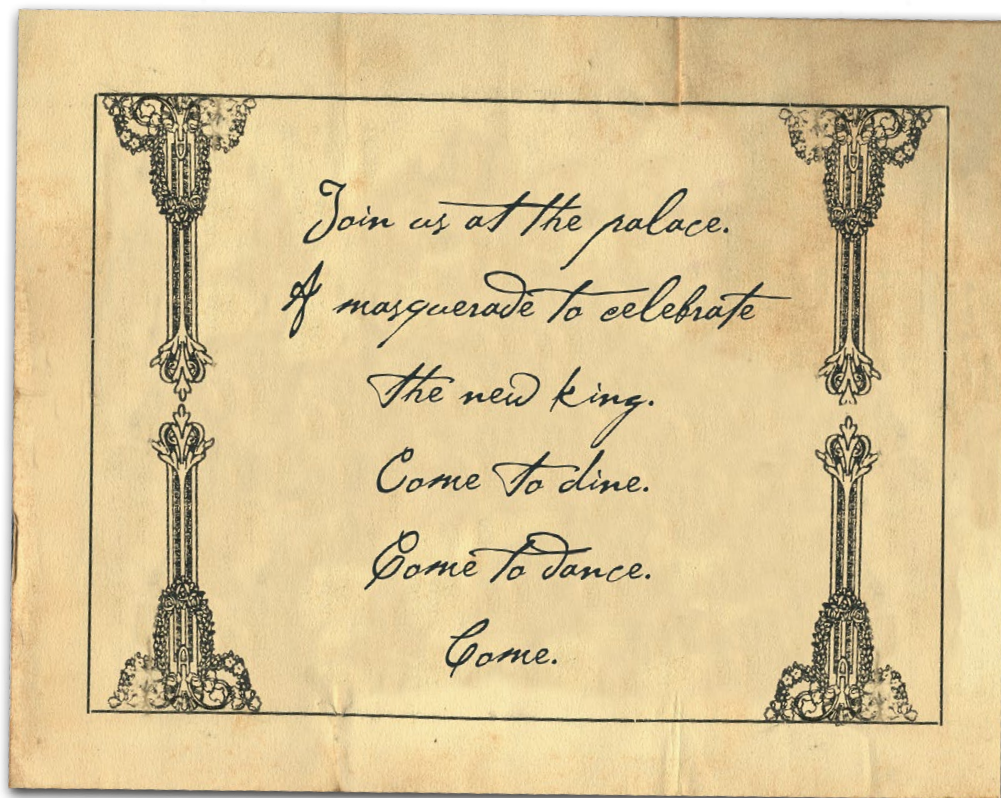 Join us at the palace.
A masquerade to celebrate
the new king.
Come to dine.
Come to dance.
Come.